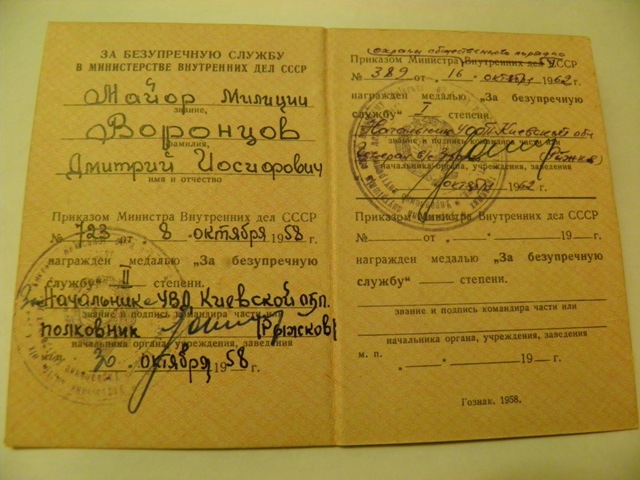 ЗА БЕЗУПРЕЧНУЮ СЛУЖБУ
В МИНИСТЕРСТВЕ ВНУТРЕННИХ ДЕЛ СССР
Майор Милиции
звание,
Воронцов
фамилия,
Дмитрий Иосифович
имя и отчество
Приказом Министра Внутренних дел СССР
№ 723 от 8 октября 1958 г.
награжден медалью „За безупречную
службу“ II степени.
Начальник УВД Киевской обл.
звание и подпись командира части или
полковник (Рыжков)
начальника органа, учреждения, заведения
м.п. 30 октября 1958 г.
охраны общественного порядка
Приказом Министра Внутренних дел
№ 389 от 16 октября 1962 г.
награжден медалью „За безупречную
службу“ I степени.
Начальник Киевской обл
звание и подпись командира части или
(Рыжков)
начальника органа, учреждения, заведения
октября 1962 г.
Приказом Министра Внутренних дел СССР
№ от 19 г.
награжден медалью „За безупречную
службу“ степени.
звание и подпись командира части или
начальника органа, учреждения, заведения
м. п. 19 г.
Гознак. 1958.